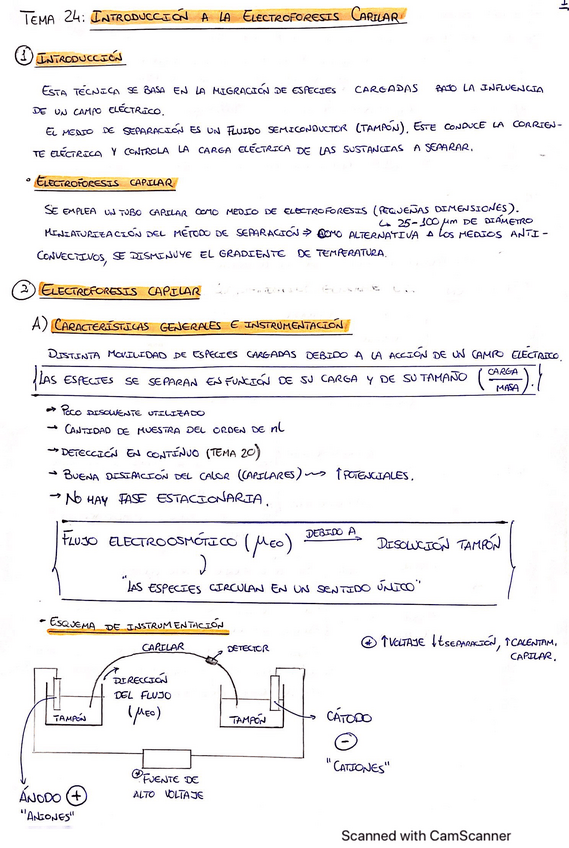 1
TEMA 24: INTRODUCCIÓN A LA ELECTROFORESIS CAPILAR
① INTRODUCCIÓN
ESTA TÉCNICA SE BASA EN LA MIGRACIÓN DE ESPECIES CARGADAS BAJO LA INFLUENCIA
DE UN CAMPO ELÉCTRICO.
EL MEDIO DE SEPARACIÓN ES UN FLUIDO SEMICONDUCTOR (TAMPÓN). ESTE CONDUCE LA CORRIEN-
TE ELÉCTRICA Y CONTROLA LA CARGA ELÉCTRICA DE LAS SUSTANCIAS A SEPARAR.
• ELECTROFORESIS CAPILAR
SE EMPLEA UN TUBO CAPILAR COMO MEDIO DE ELECTROFORESIS (PEQUEÑAS DIMENSIONES).
↳ 25-100 μm DE DIÁMETRO
MINIATURIZACIÓN DEL MÉTODO DE SEPARACIÓN ⇒ COMO ALTERNATIVA A LOS MEDIOS ANTI-
CONVECTIVOS, SE DISMINUYE EL GRADIENTE DE TEMPERATURA.
② ELECTROFORESIS CAPILAR
A) CARACTERÍSTICAS GENERALES E INSTRUMENTACIÓN
DISTINTA MOVILIDAD DE ESPECIES CARGADAS DEBIDO A LA ACCIÓN DE UN CAMPO ELÉCTRICO.
LAS ESPECIES SE SEPARAN EN FUNCIÓN DE SU CARGA Y DE SU TAMAÑO (CARGA/MASA).
→ POCO DISOLVENTE UTILIZADO
→ CANTIDAD DE MUESTRA DEL ORDEN DE nL
→ DETECCIÓN EN CONTÍNUO (TEMA 20)
→ BUENA DISIPACIÓN DEL CALOR (CAPILARES) → ↑POTENCIALES.
→ NO HAY FASE ESTACIONARIA.
FLUJO ELECTROOSMÓTICO (μEO) DEBIDO A → DISOLUCIÓN TAMPÓN
"LAS ESPECIES CIRCULAN EN UN SENTIDO ÚNICO"
• ESQUEMA DE INSTRUMENTACIÓN
⊛ ↑VOLTAJE ↓tSEPARACIÓN, ↑CALENTAM.
CAPILAR.
CAPILAR
DETECTOR
DIRECCIÓN
DEL FLUJO
(μEO)
TAMPÓN
TAMPÓN
CÁTODO
⊖
"CATIONES"
⊛FUENTE DE
ALTO VOLTAJE
ÁNODO ⊕
"ANIONES"
Scanned with CamScanner